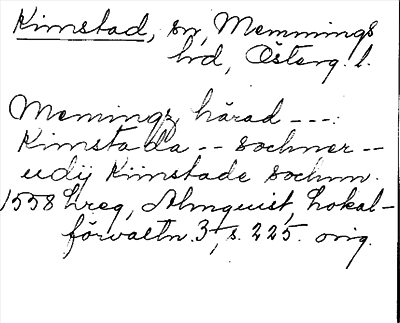 Kimstad, sn, Memmings
hd, Österg. l.
Memings härad ---.
Kimstada -- sochner --
udij Kimstade sochnn.
1558 Lreg, Almquist, Lokal-
förvaltn. 3, s. 225. orig.